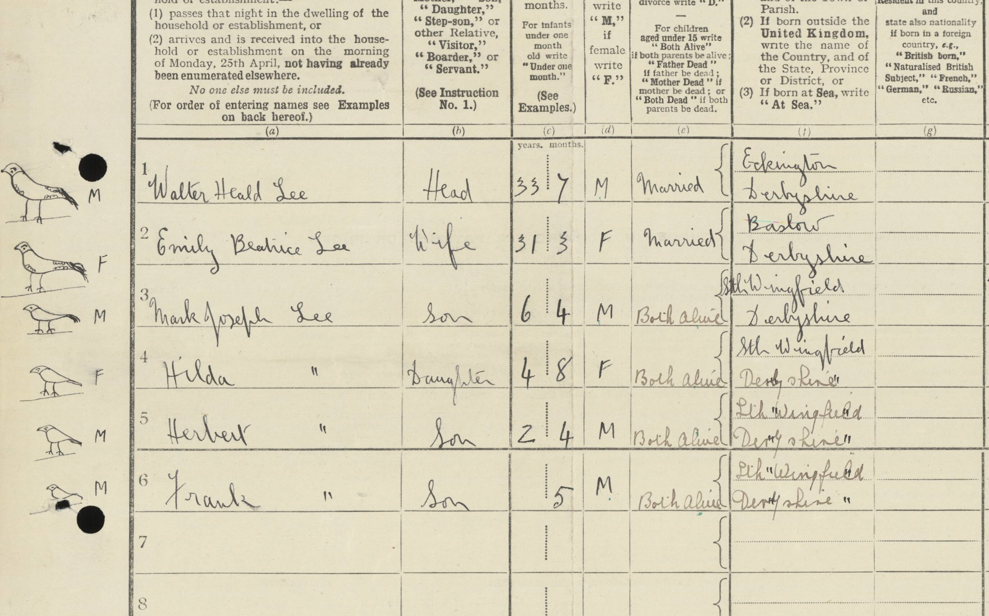 hold or establishment:—
(1) passes that night in the dwelling of the
household or establishment, or
(2) arrives and is received into the house-
hold or establishment on the morning
of Monday, 25th April, not having already
been enumerated elsewhere.
No one else must be included.
(For order of entering names see Examples
on back hereof.)
"Step-son," or
other Relative,
"Visitor,"
"Boarder," or
"Servant."
(See Instruction
No. 1.)
months.
For infants
under one
month
old write
"Under one
month."
(See
Examples.)
write
"M,"
if
female
write
"F."
divorce write "D."
—
For children
aged under 15 write
"Both Alive"
if both parents be alive;
"Father Dead" if
if father be dead;
"Mother Dead" if
mother be dead; or
"Both Dead" if both
parents be dead.
Parish.
(2) If born outside the
United Kingdom,
write the name of
the Country, and of
the State, Province
or District, or
(3) If born at Sea, write
"At Sea."
Resident in this country,
and
state also nationality
if born in a foreign
country, e.g.,
"British born,"
"Naturalised British
Subject," "French,"
"German," "Russian,"
etc.
(a) (b) (c) (d) (e) (f) (g)
years. months.
M 1 Walter Heald Lee Head 33 7 M Married Eckington
Derbyshire
F 2 Emily Beatrice Lee Wife 31 3 F Married Baslow
Derbyshire
M 3 Mark Joseph Lee Son 6 4 M Both Alive Sth Wingfield
Derbyshire
F 4 Hilda " Daughter 4 8 F Both Alive Sth Wingfield
Derbyshire "
M 5 Herbert " Son 2 4 M Both Alive Sth "Wingfield
Derbyshire "
M 6 Frank " Son 5 M Both Alive Sth "Wingfield
Derbyshire "
7
8